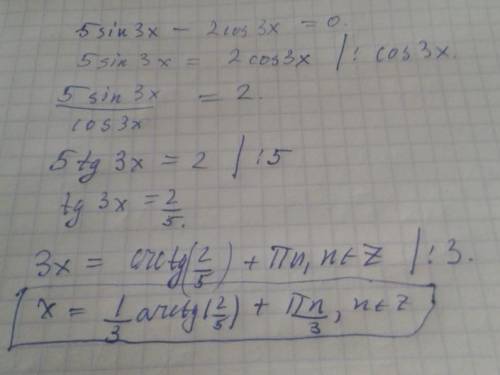 5sin3x - 2cos3x = 0.
5sin3x = 2cos3x /: cos3x.
5sin3x/cos3x = 2.
5tg3x = 2 /:5
tg3x = 2/5.
3x = arctg(2/5) + πn, n∈Z /:3.
x = 1/3 arctg(2/5) + πn/3, n∈Z